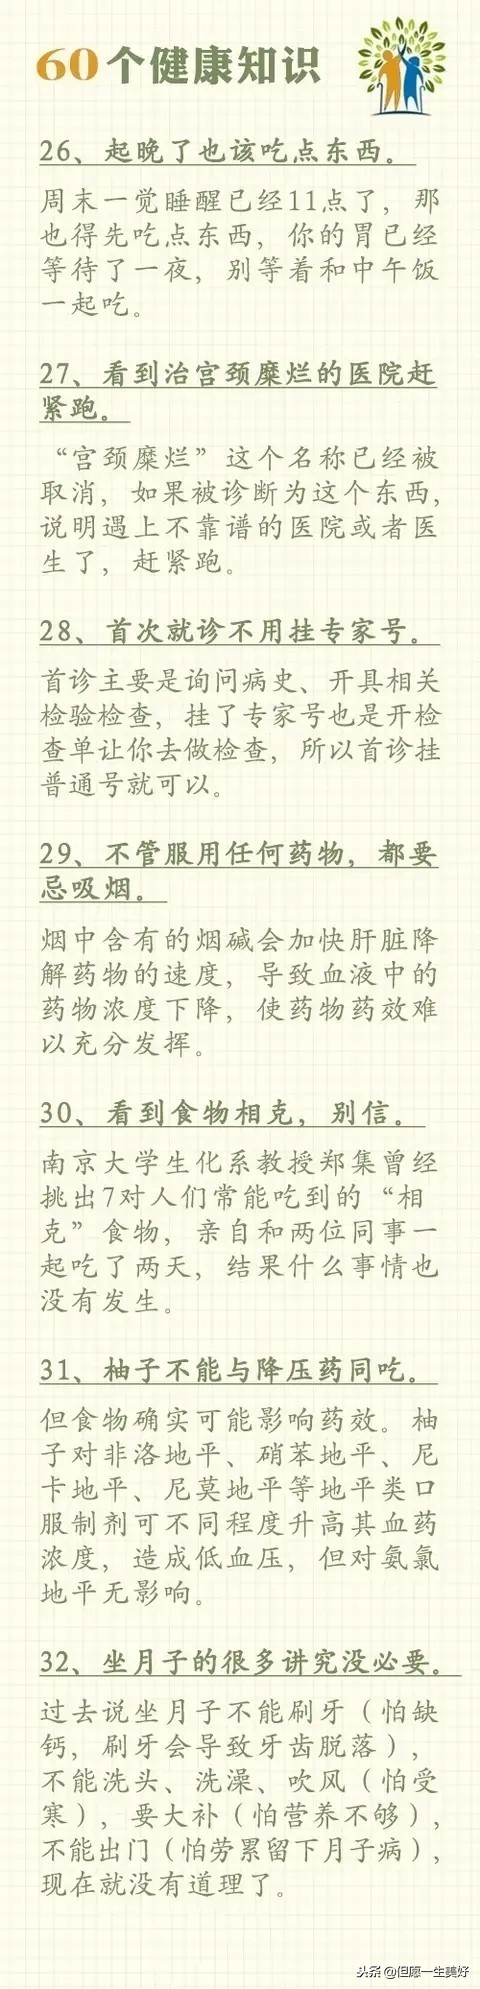 60个健康知识
26、起晚了也该吃点东西。
周末一觉睡醒已经11点了，那
也得先吃点东西，你的胃已经
等待了一夜，别等着和中午饭
一起吃。
27、看到治宫颈糜烂的医院赶
紧跑。
“宫颈糜烂”这个名称已经被
取消，如果被诊断为这个东西，
说明遇上不靠谱的医院或者医
生了，赶紧跑。
28、首次就诊不用挂专家号。
首诊主要是询问病史、开具相关
检验检查，挂了专家号也是开检
查单让你去做检查，所以首诊挂
普通号就可以。
29、不管服用任何药物，都要
忌吸烟。
烟中含有的烟碱会加快肝脏降
解药物的速度，导致血液中的
药物浓度下降，使药物药效难
以充分发挥。
30、看到食物相克，别信。
南京大学生化系教授郑集曾经
挑出7对人们常能吃到的“相
克”食物，亲自和两位同事一
起吃了两天，结果什么事情也
没有发生。
31、柚子不能与降压药同吃。
但食物确实可能影响药效。柚
子对非洛地平、硝苯地平、尼
卡地平、尼莫地平等地平类口
服制剂可不同程度升高其血药
浓度，造成低血压，但对氨氯
地平无影响。
32、坐月子的很多讲究没必要。
过去说坐月子不能刷牙（怕缺
钙，刷牙会导致牙齿脱落），
不能洗头、洗澡、吹风（怕受
寒），要大补（怕营养不够），
不能出门（怕劳累留下月子病），
现在就没有道理了。
头条 @但愿一生美好